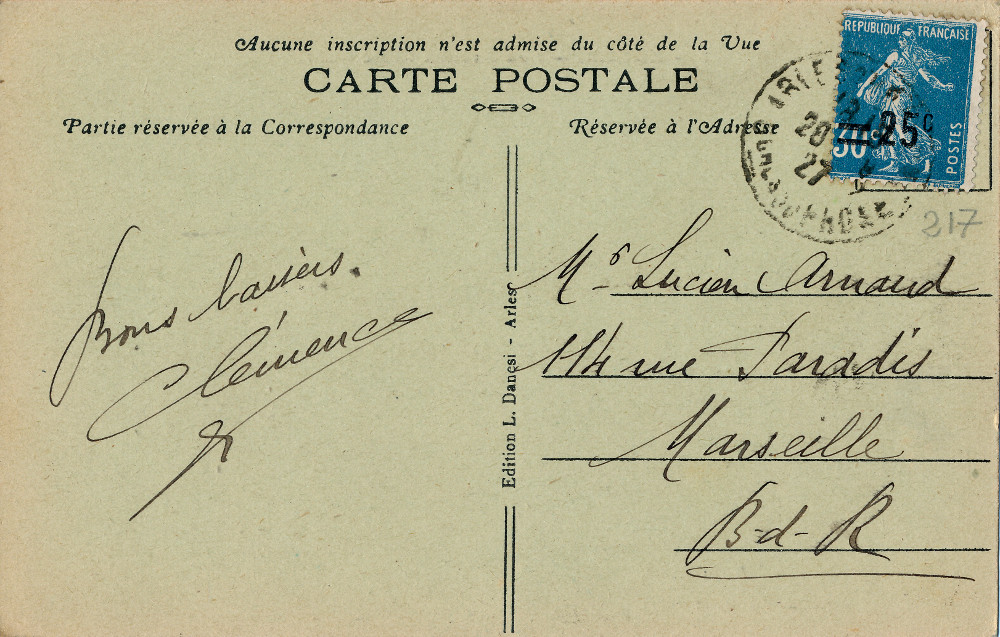 Aucune inscription n'est admise du côté de la Vue
CARTE POSTALE
Partie réservée à la Correspondance
Réservée à l'Adresse
REPUBLIQUE FRANÇAISE
25c
30c
POSTES
20
27
217
Bons baisers.
Clémence
Edition L. Danesi - Arles
Mr Lucien Arnaud
114 rue Paradis
Marseille
B-d-R